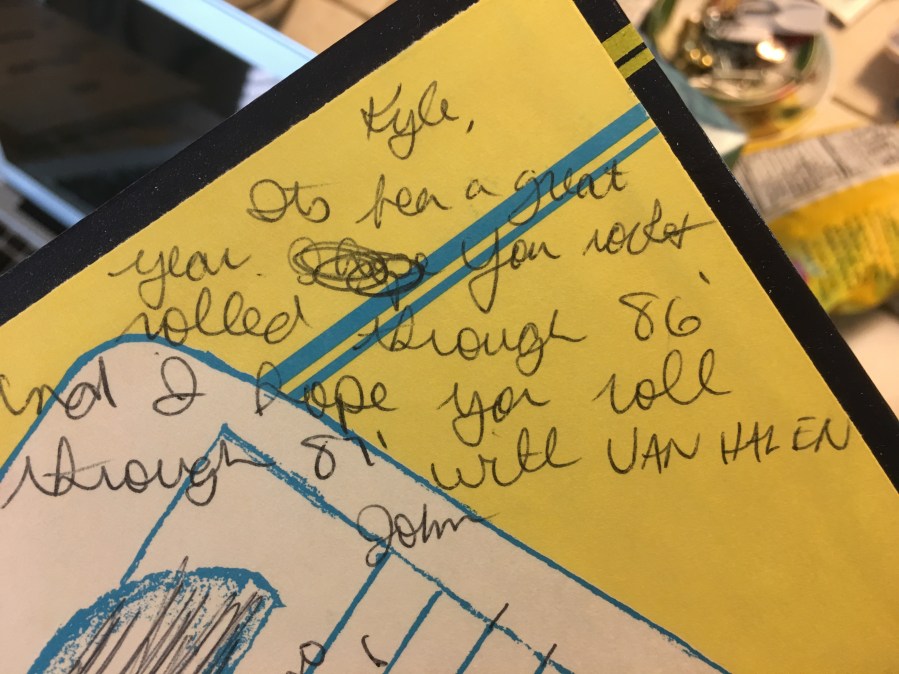 Kyle,
Its been a great
year. You rocked
rolled through 86'
and I hope you roll
through 87' with VAN HALEN
John